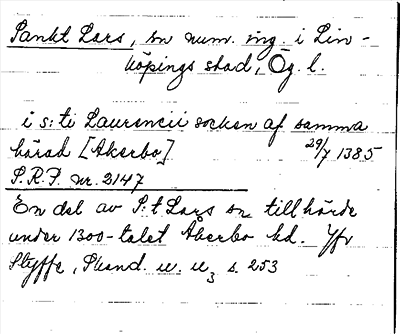 Sankt Lars, sn num. ing. i Lin-
köpings stad, Ög. l.
i s:ti Laurencii socken af samma
härad [Akerbo] 29/7 1385
S.R.P. nr. 2147
En del av S:t Lars sn tillhörde
under 1300-talet Åkerbo hd. Jfr
Styffe, Skand. u. U3 s. 253